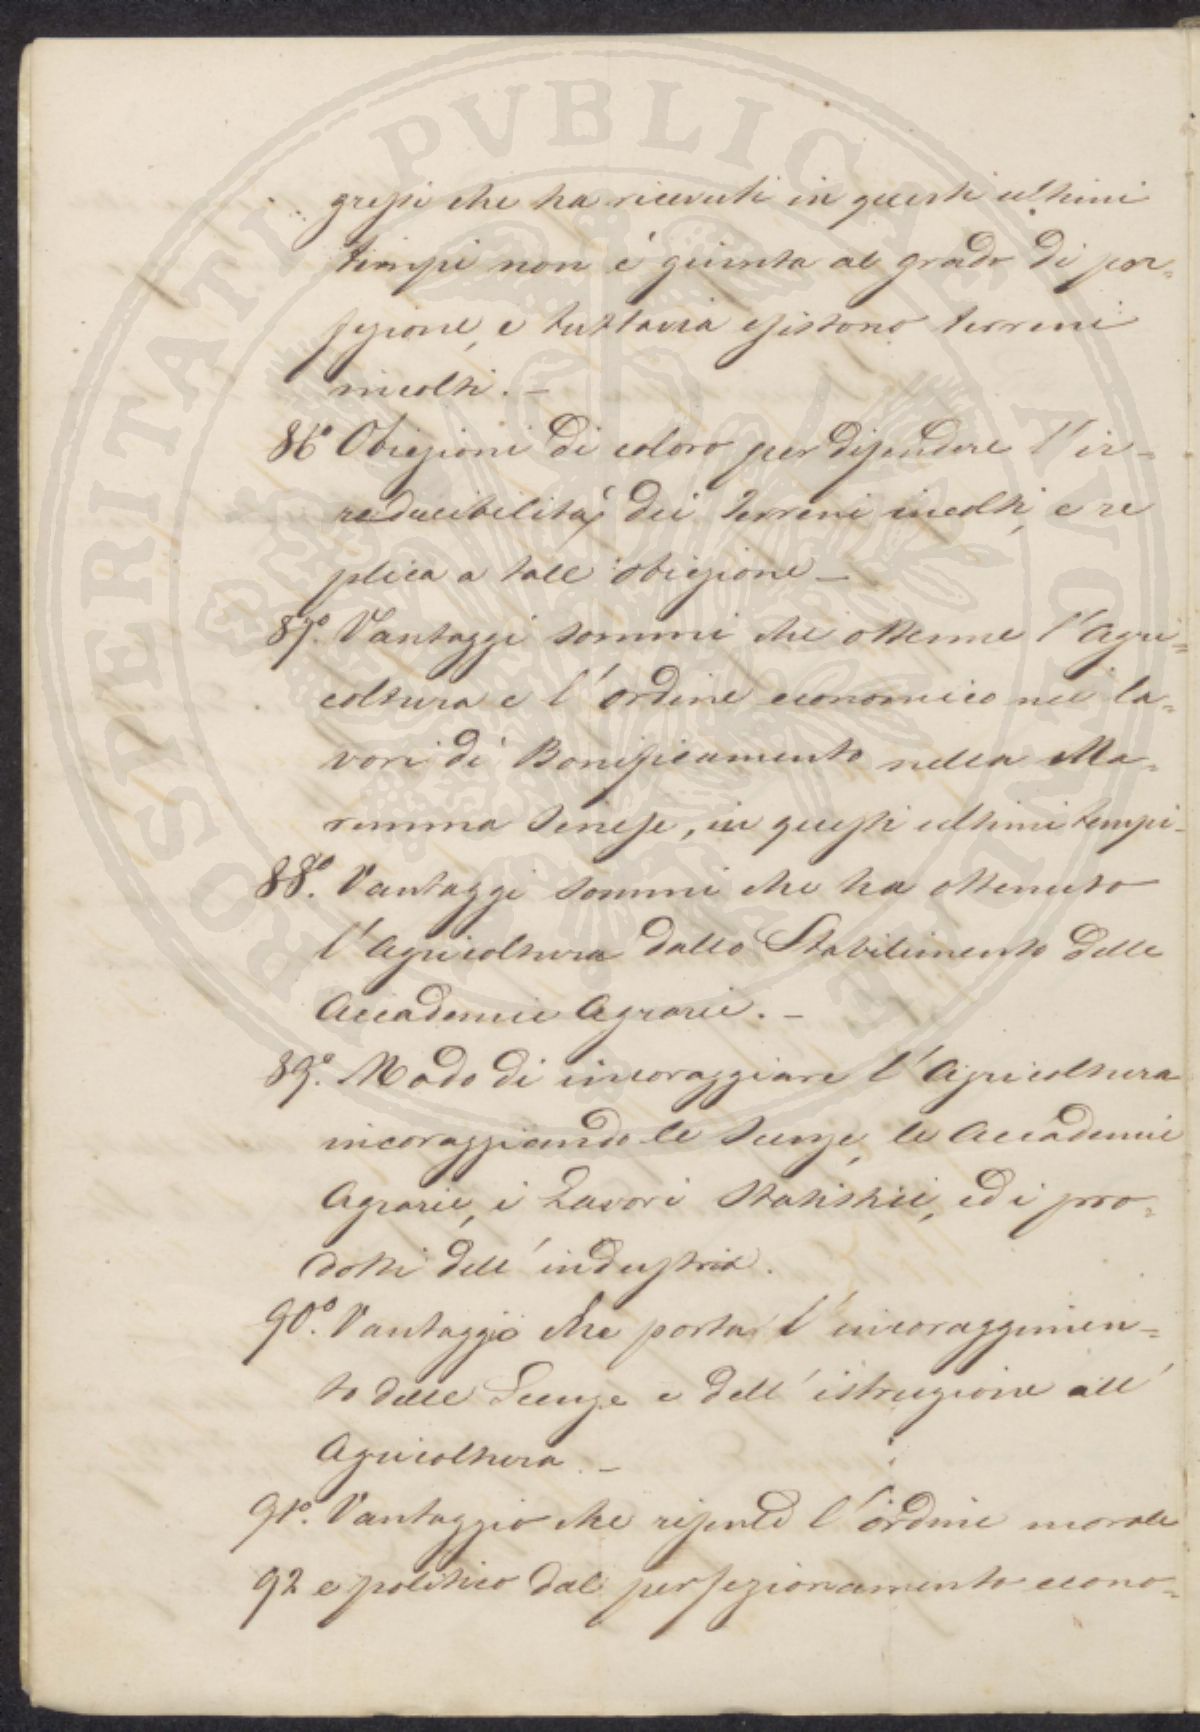 gressi che ha ricevuti in questi ultimi
tempi non è giunta al grado di per=
fezione, e tuttavia esistono terreni
incolti. –
86° Obiezioni di coloro per difendere l'ir=
reducibilità dei terreni incolti, e re
plica a tale obiezione –
87°. Vantaggi sommi che ottenne l'Agri=
coltura e l'ordine economico nei la=
vori di Bonificamento nella Ma=
remma Senese, in questi ultimi tempi –
88°. Vantaggi sommi che ha ottenuto
l'Agricoltura dallo Stabilimento delle
Accademie Agrarie. –
89°. Modo di incoraggiare l'Agricoltura
incoraggiando le Scienze, le Accademie
Agrarie, i Lavori Statistici, ed i pro=
dotti dell'industria.
90°. Vantaggio che porta l'incoraggimen=
to delle Scienze e dell'istruzione all'
Agricoltura –
91°. Vantaggio che risente l'ordine morale
92 e politico dal perfezionamento econo=
PROSPERITATI PVBLICAE AVGENDAE